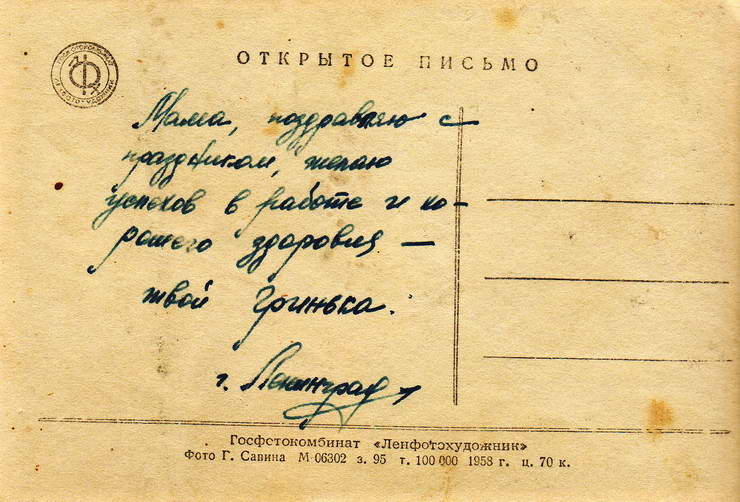 ОТКРЫТОЕ ПИСЬМО
Мама, поздравляю с
праздником, желаю
успехов в работе и хо-
рошего здоровья —
твой Гринька.
г. Ленинград
Госфотокомбинат «Ленфотохудожник»
Фото Г. Савина М-06302 з. 95 т. 100 000 1958 г. ц. 70 к.